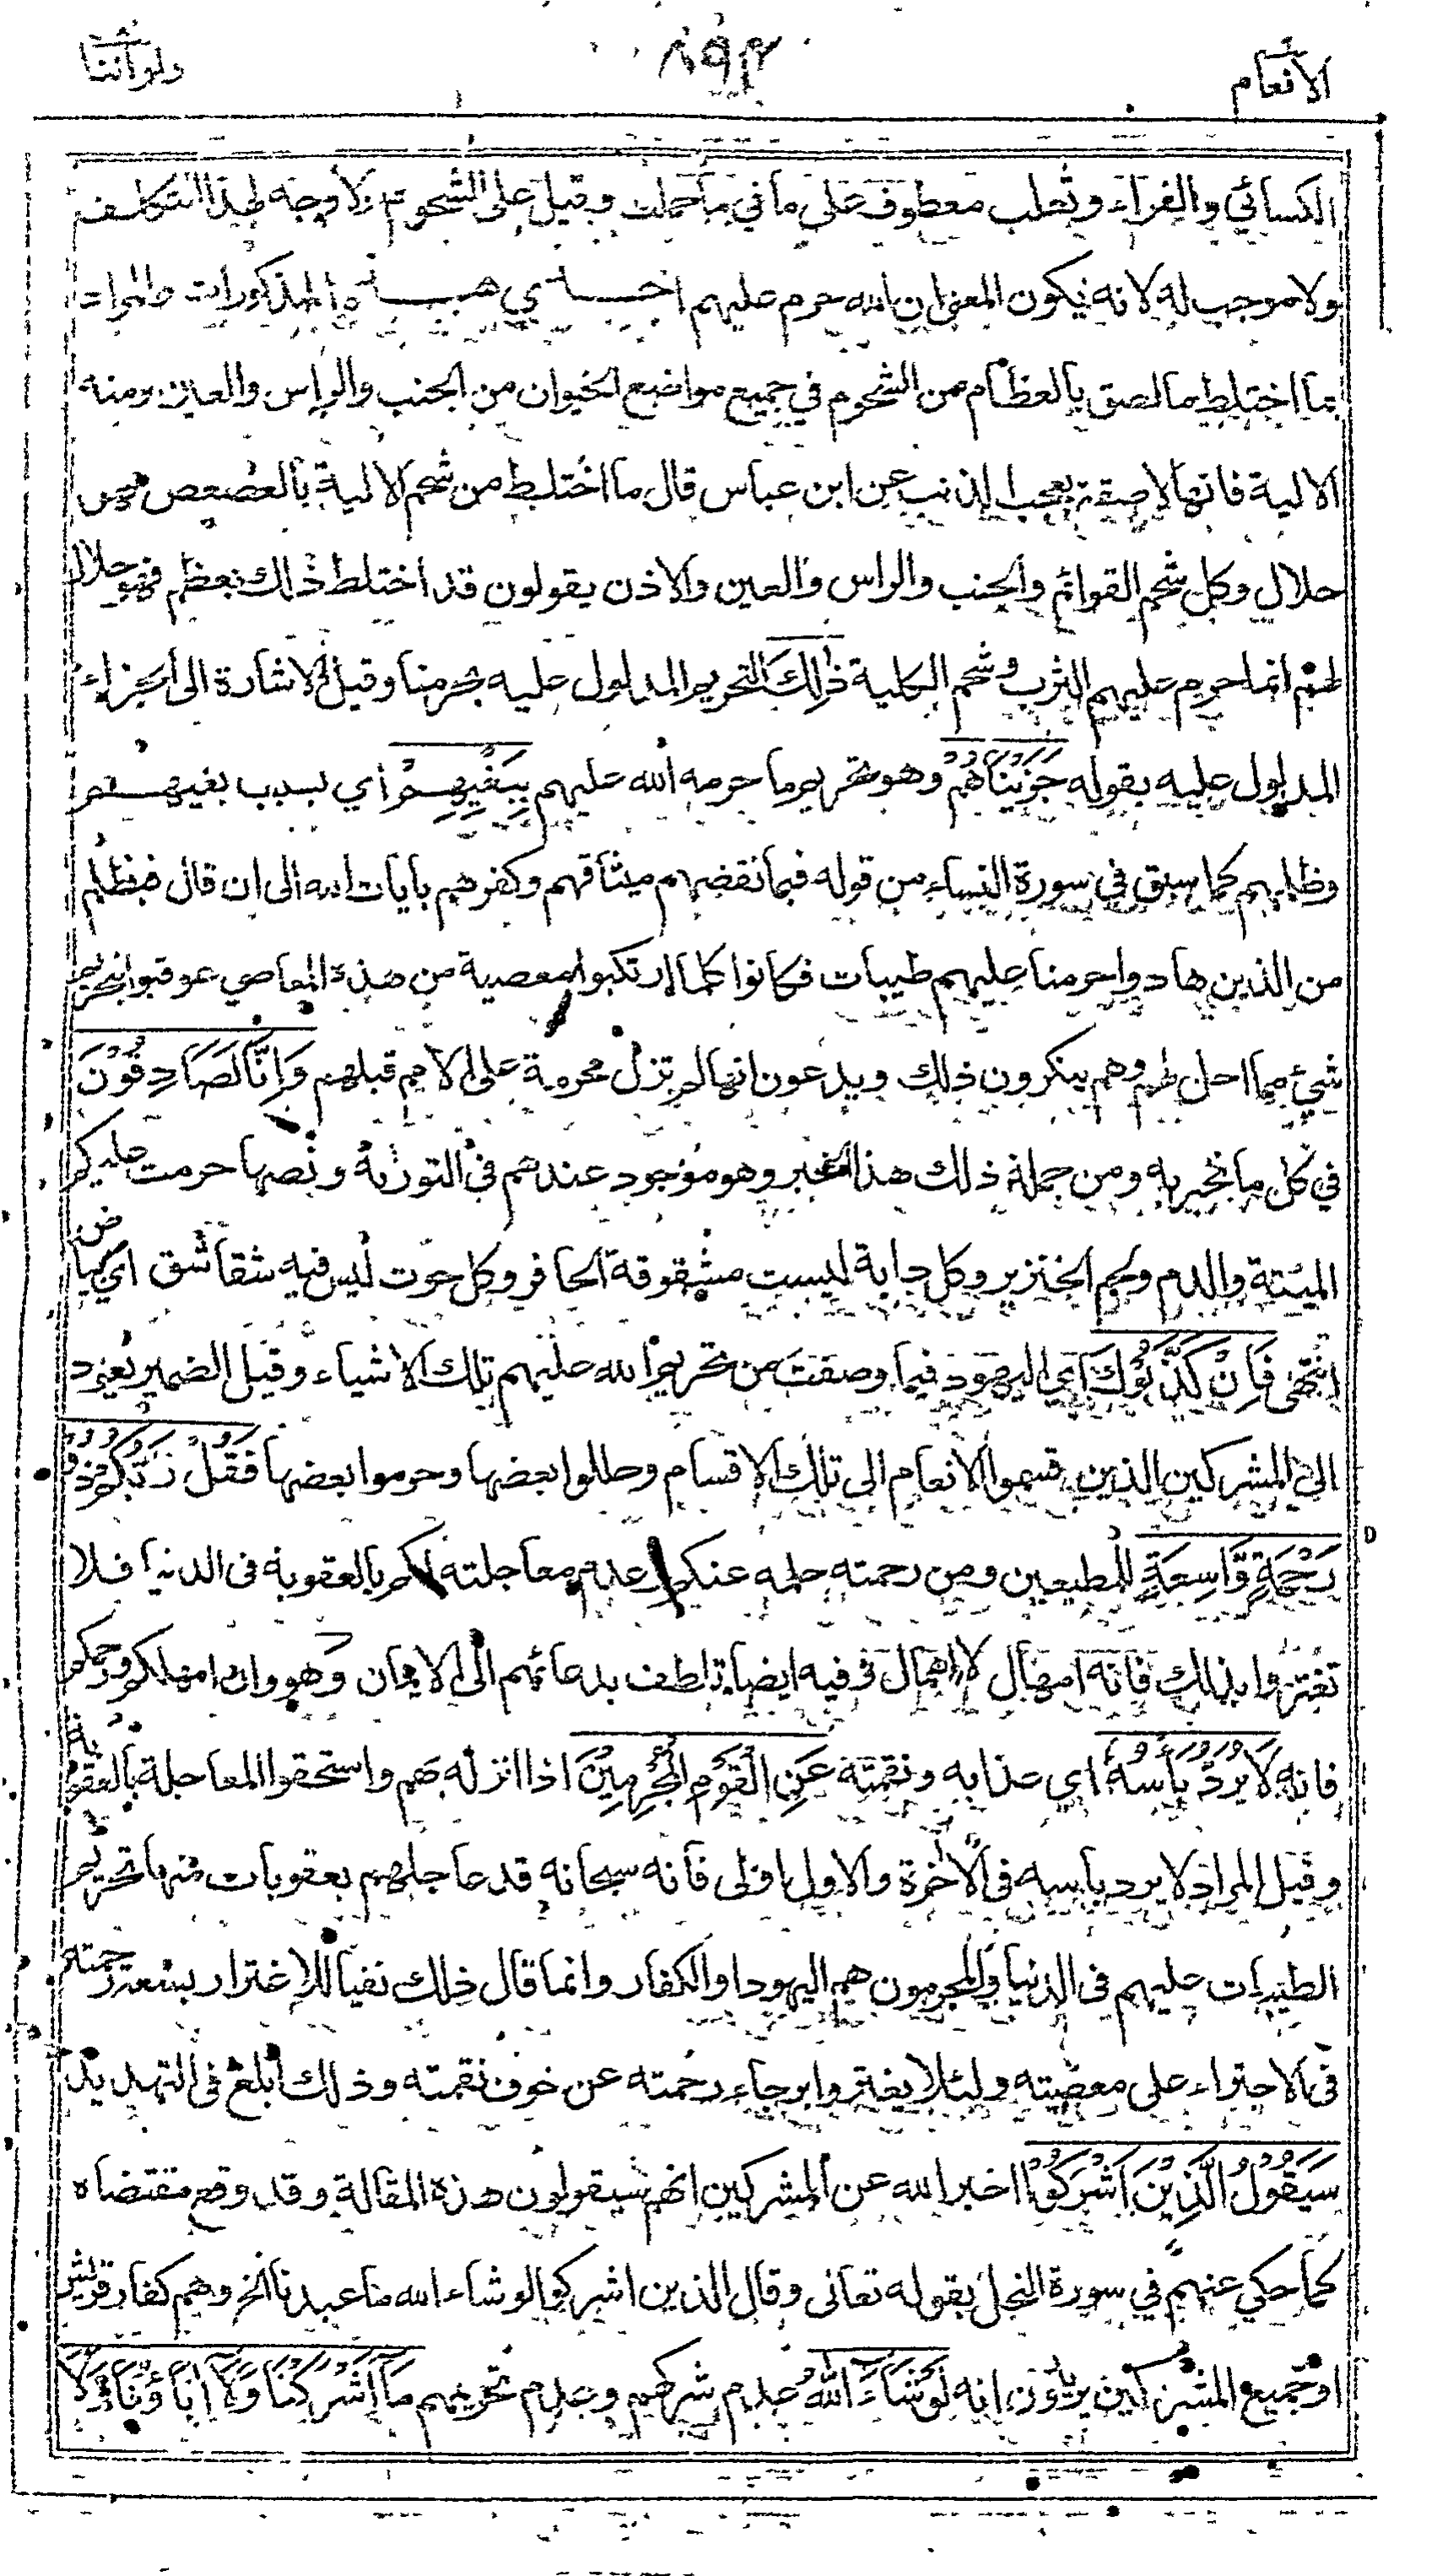 الانعام ٨٩٣ ولواننا
الكسائي والفراء وثعلب معطوف على ما في ما حملت وقيل على الشحوم ولا وجه لهذا التكلف
ولا موجب له لانه يكون المعنى ان الله حرم عليهم احدى هذه المذكورات والمراد
بما اختلط ما لصق بالعظام من الشحوم في جميع مواضع الحيوان من الجنب والراس والعين ومنه
الالية فانها لاصقة بعجب الذنب عن ابن عباس قال ما اختلط من شحم الالية بالعصعص فهو
حلال وكل شحم القوائم والجنب والراس والعين والاذن يقولون قد اختلط ذلك بعظم فهو حلال
لهم انما حرم عليهم الثرب وشحم الكلية ذٰلِكَ التحريم المدلول عليه بحرمنا وقيل الاشارة الى الجزاء
المدلول عليه بقوله جَزَيْنَاهُمْ وهو تحريم ما حرمه الله عليهم بِبَغْيِهِمْ اي بسبب بغيهم
وظلمهم كما سبق في سورة النساء من قوله فبما نقضهم ميثاقهم وكفرهم بايات الله الى ان قال فبظلم
من الذين هادوا حرمنا عليهم طيبات فكانوا كلما ارتكبوا معصية من هذه المعاصي عوقبوا بتحريم
شيء مما احل لهم وهم ينكرون ذلك ويدعون انها لم تزل محرمة على الامم قبلهم وَاِنَّا لَصَادِقُوْنَ
في كل ما نخبر به ومن جملة ذلك هذا الخبر وهو موجود عندهم في التورىة ونصها حرمت عليكم
الميتة والدم ولحم الخنزير وكل دابة ليست مشقوقة الحافر وكل حوت ليس فيه شقاشق اي بياض
انتهى فَاِنْ كَذَّبُوْكَ اي اليهود فيما وصفت من تحريم الله عليهم تلك الاشياء وقيل الضمير يعود
الى المشركين الذين قسموا الانعام الى تلك الاقسام وحللوا بعضها وحرموا بعضها فَقُلْ رَبُّكُمْ ذُوْ
رَحْمَةٍ وَّاسِعَةٍ للمطيعين ومن رحمته حلمه عنكم وعدم معاجلته لكم بالعقوبة في الدنيا فلا
تغتروا بذلك فانه امهال لا اهمال وفيه ايضا تلطف بدعائهم الى الايمان وهو وان امهلكم ورحمكم
فانه لَا يُرَدُّ بَأْسُهُ اي عذابه ونقمته عَنِ الْقَوْمِ الْمُجْرِمِيْنَ اذا انزله بهم واستحقوا المعاجلة بالعقوبة
وقيل المراد لا يرد بأسه في الآخرة والاول اولى فانه سبحانه قد عاجلهم بعقوبات منها تحريم
الطيبات عليهم في الدنيا والمجرمون هم اليهود او الكفار وانما قال ذلك نفيا للاغترار بسعة رحمته
في الاجتراء على معصيته ولئلا يغتروا برجاء رحمته عن خوف نقمته وذلك ابلغ في التهديد
سَيَقُوْلُ الَّذِيْنَ اَشْرَكُوْا اخبر الله عن المشركين انهم سيقولون هذه المقالة وقد وقع مقتضاه
كما حكي عنهم في سورة النحل بقوله تعالى وقال الذين اشركوا لو شاء الله ما عبدنا الخ وهم كفار قريش
او جميع المشركين يريدون انه لَوْ شَاءَ اللّٰهُ عدم شركهم وعدم تحريمهم مَآ اَشْرَكْنَا وَلَآ اٰبَاؤُنَا وَلَا